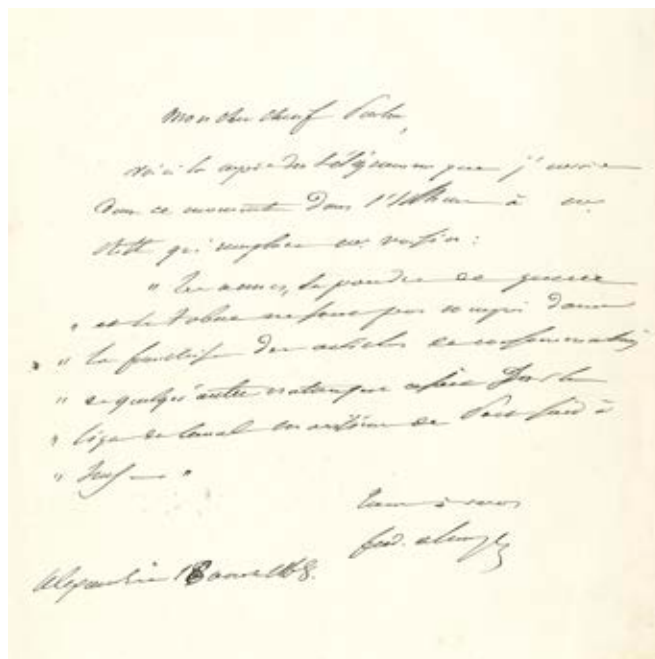 Mon cher Chérif Pacha,
Voici la copie du télégramme que j'envoie
dans ce moment dans l'Isthme à M.
qui remplace M. Voisin :
" Les armes, la poudre de guerre
" et le tabac ne sont pas compris dans
" la franchise des articles de consommation
" de quelqu'autre nature que ce soit sur la
" ligne du Canal maritime de Port Saïd à
" Suez — "
Tout à vous
Ferd. de Lesseps
Alexandrie 18 68.